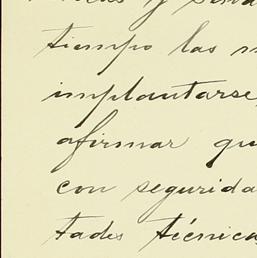 y
tiempo las
implantarse,
afirmar qu
con segurida
tades técnica